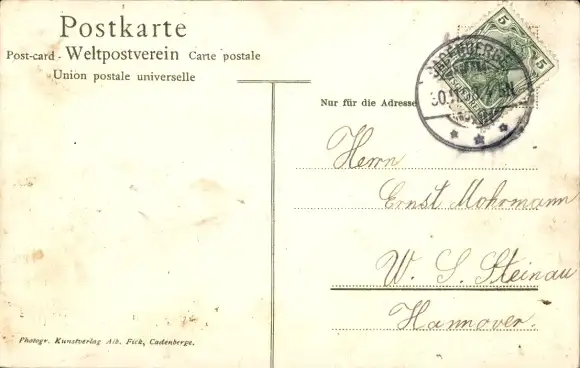 Postkarte
Post-card - Weltpostverein Carte postale
Union postale universelle
5
5
CADENBERGE
Nur für die Adresse
Herrn
Ernst Mohrmann
W. S. Steinau
Hannover.
Photogr. Kunstverlag Alb. Fick, Cadenberge.